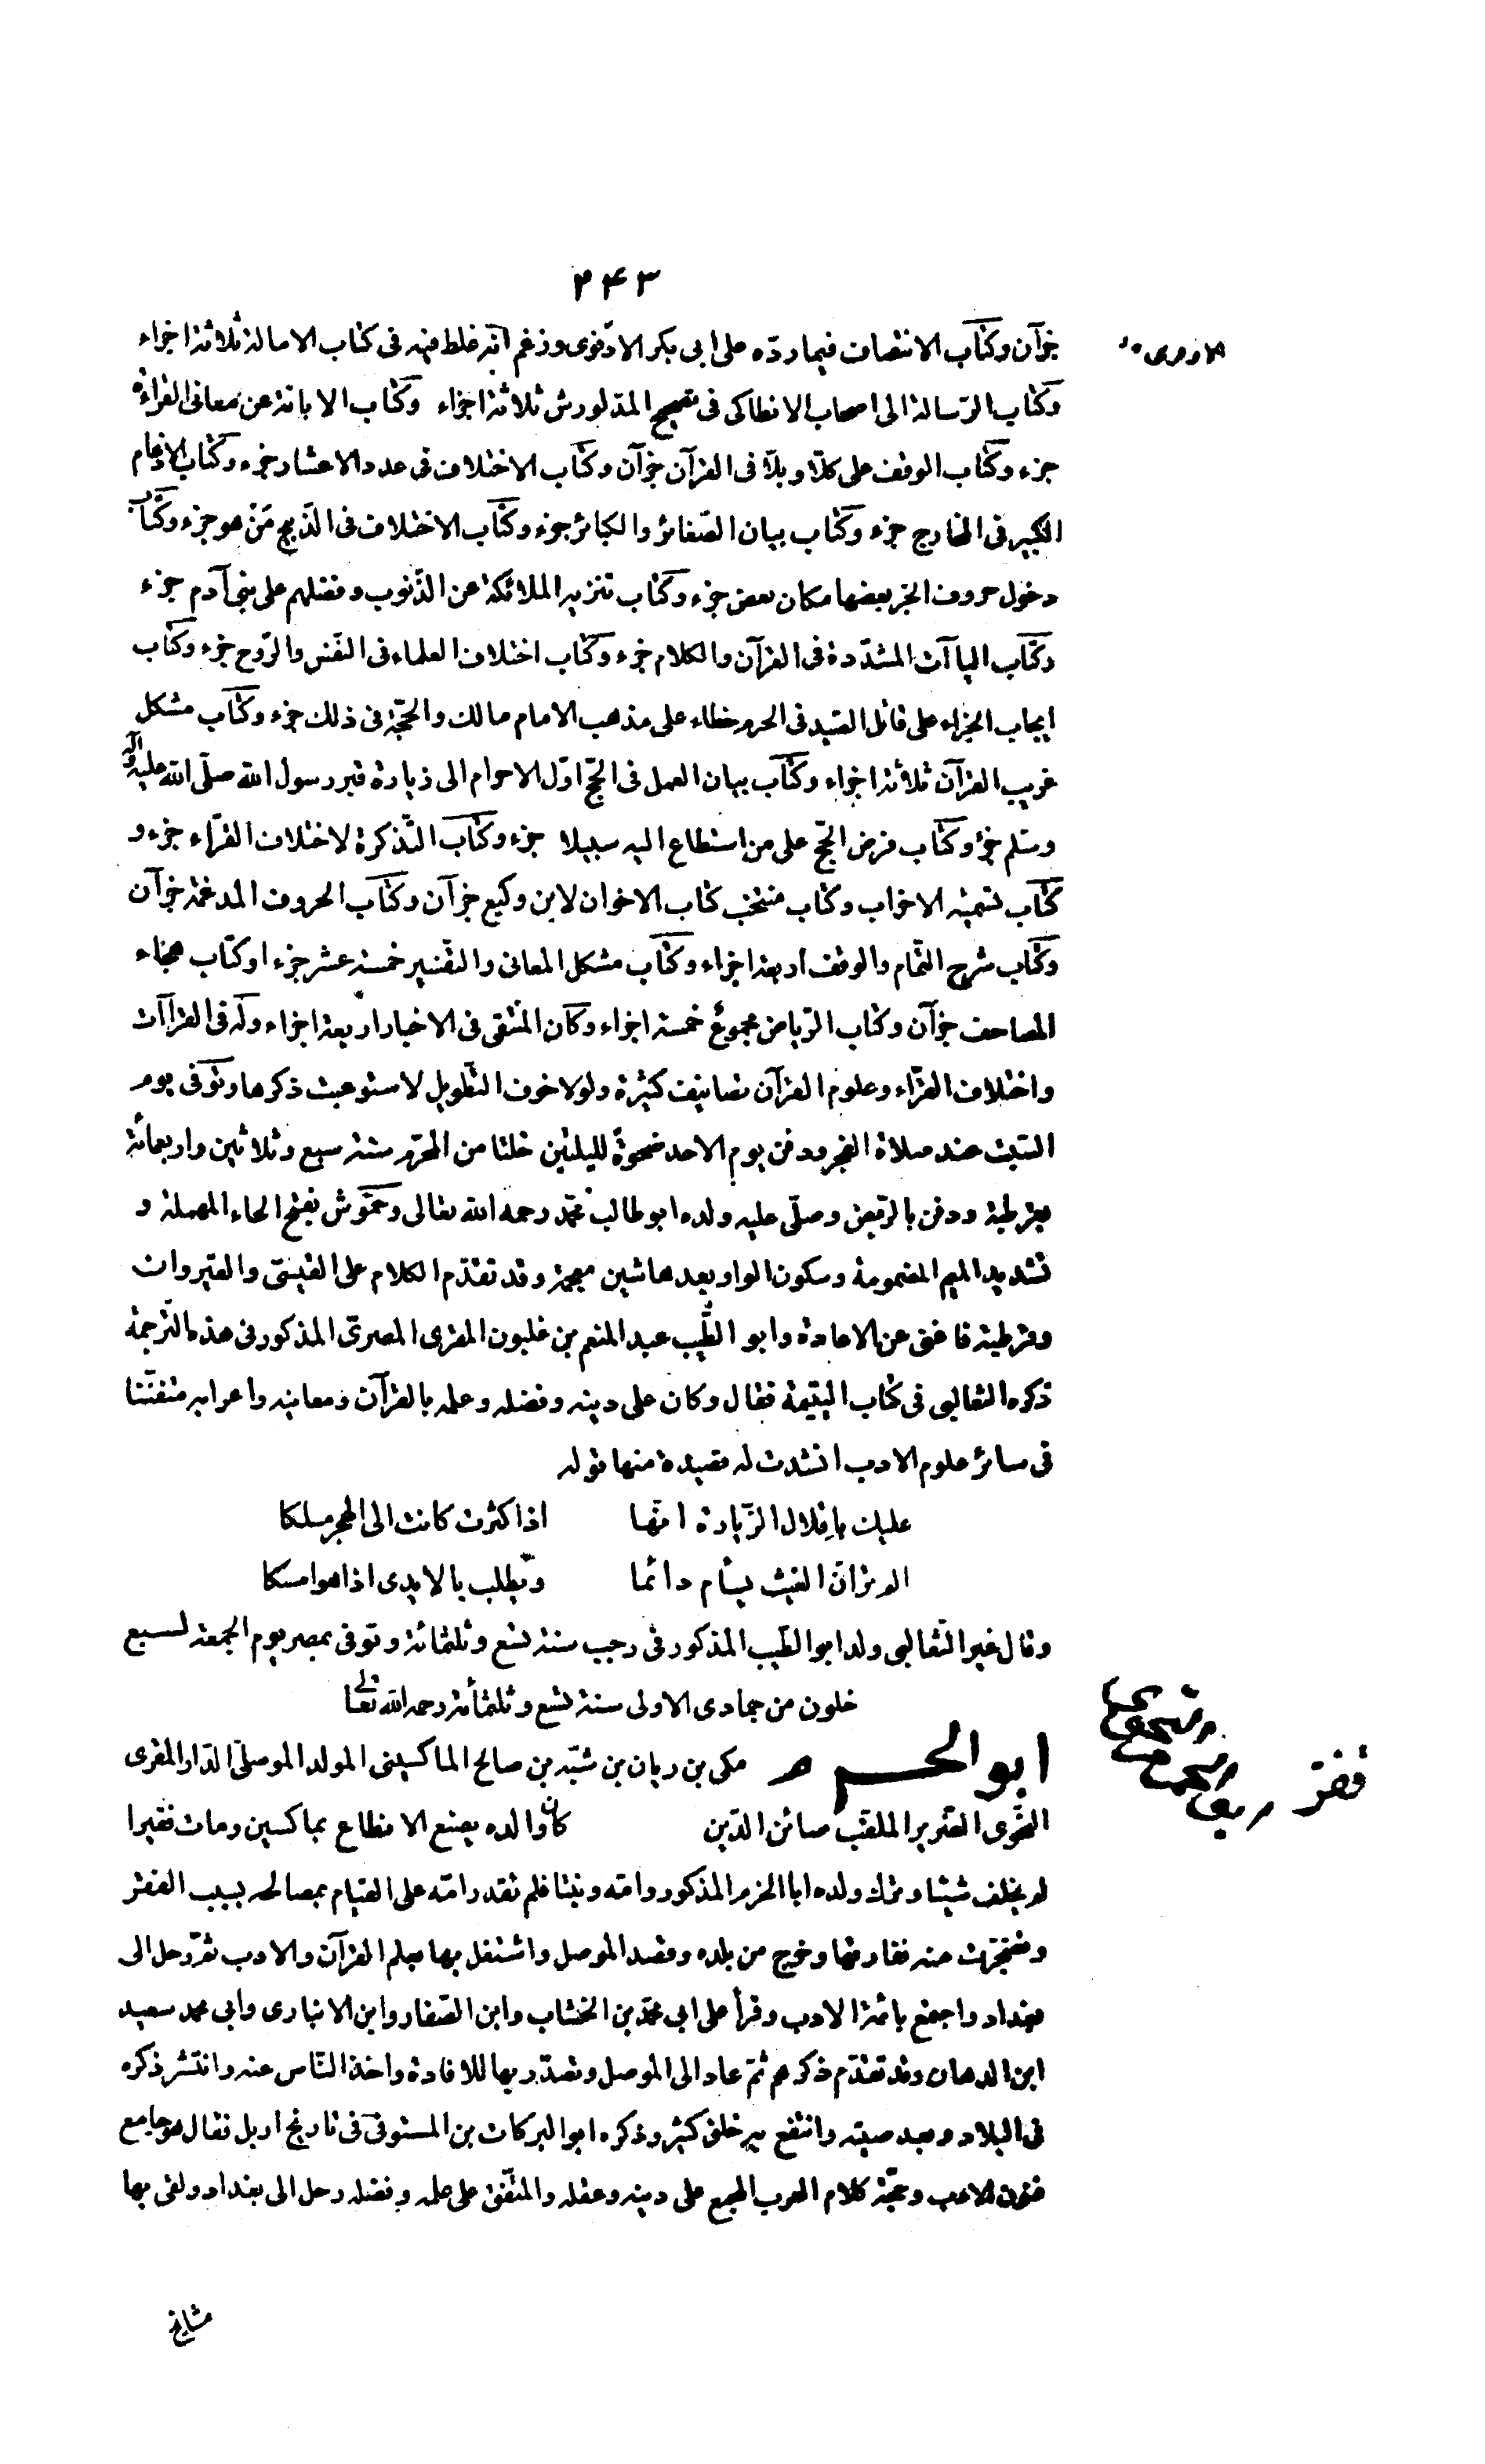 ۲۴۳
جزآن وكتاب الانتصاف فيما ردّه على ابى بكر الادفوى وزعم انّه غلط فيه فى كتاب الامالة ثلاثة اجزاء
وكتاب الرّسالة الى اصحاب الانطاكى فى تصحيح المدّ لورش ثلاثة اجزاء وكتاب الابانة عن معانى القراءة
جزء وكتاب الوقف على كلّا وبلا فى القرآن جزآن وكتاب الاختلاف فى عدد الاعشار جزء وكتاب الادغام
الكبير فى المخارج جزء وكتاب بيان الصّغائر والكبائر جزء وكتاب الاختلاف فى الذّبيح مَنْ هو جزء وكتاب
دخول حروف الجرّ بعضها مكان بعض جزء وكتاب تنزيه الملائكة عن الذّنوب وفضلهم على بنى آدم جزء
وكتاب الياآت المشدّدة فى القرآن والكلام جزء وكتاب اختلاف العلماء فى النّفس والرّوح جزء وكتاب
ايجاب الجزاء على قاتل الصّيد فى الحرم خطاء على مذهب الامام مالك والحجّة فى ذلك جزء وكتاب مشكل
غريب القرآن ثلاثة اجزاء وكتاب بيان العمل فى الحجّ اوّل الاحرام الى زيارة قبر رسول الله صلّى الله عليه وآله
وسلّم جزؤ وكتاب فرض الحجّ على من استطاع اليه سبيلا جزء وكتاب التّذكرة لاختلاف القرّاء جزء و
كتاب تسمية الاحزاب وكتاب منتخب كتاب الاخوان لابن وكيع جزآن وكتاب الحروف المدغمة جزآن
وكتاب شرح التّمام والوقف اربعة اجزاء وكتاب مشكل المعانى والتّفسير خمسة عشر جزء ا وكتاب هجاء
المصاحف جزآن وكتاب الرّياض مجموع خمسة اجزاء وكان المنتقى فى الاخبار اربعة اجزاء وله فى القراآت
واختلاف القرّاء وعلوم القرآن تصانيف كثيرة ولولا خوف التّطويل لاستوعبت ذكرها وتوفّى يوم
السّبت عند صلاة الفجر ودفن يوم الاحد ضحوةً لليلتين خلتا من المحرّم سنة سبع وثلاثين واربعمائة
بقرطبة ودفن بالرّبض وصلّى عليه ولده ابو طالب محمّد رحمه الله تعالى وحمّوش بفتح الحاء المهملة و
تشديد الميم المضمومة وسكون الواو بعدها شين معجمة وقد تقدّم الكلام على القيسىّ والقيروان
وقرطبة فاغنى عن الاعادة وابو الطّيب عبد المنعم بن غلبون المقرى المصرىّ المذكور فى هذه التّرجمة
ذكره الثعالبى فى كتاب اليتيمة فقال وكان على دينه وفضله وعلمه بالقرآن ومعانيه واعرابه متفنّنا
فى سائر علوم الادب انشدت له قصيدة منها قوله
عليك باقلال الزّيارة انّها اذا كثرت كانت الى الهجر مسلكا
الم تر انّ الغيث يسأم دائما ويطلب بالايدى اذا هو امسكا
وقال غير الثّعالبى ولد ابو الطّيب المذكور فى رجب سنة تسع وثلثمائة وتوفى بمصر يوم الجمعة لسبع
خلون من جمادى الاولى سنة تسع وثلثمأئة رحمه الله تعالى
ابو الحـــــرم مكى بن ريان بن شبّه بن صالح الماكسينى المولد الموصلىّ الدّار المقرى
النّحوى الضّرير الملقّب صائن الدّين كان والده يصنع الانطاع بماكسين ومات فقيرا
لم يخلف شيئا وترك ولده ابا الحزم المذكور وامّه وبنتا فلم تقدر امّه على القيام بمصالحه بسبب الفقر
وضجرت منه ففارقها وخرج من بلده وقصد الموصل واشتغل بها بعلم القرآن والادب ثمّ رحل الى
بغداد واجتمع بائمّة الادب وقرأ على ابى محمّد بن الخشاب وابن الصّفار وابن الانبارى وابى محمد سعيد
ابن الدهان وقد تقدّم ذكرهم ثمّ عاد الى الموصل وتصدّر بها للافادة واخذ النّاس عنه وانتشر ذكره
فى البلاد وبعد صيته وانتفع به خلق كثير وذكره ابو البركات بن المستوفى فى تاريخ اربل فقال هو جامع
فنون الادب وحجّة كلام العرب المجمع على دينه وعقله والمتّفق على علمه وفضله رحل الى بغداد ولقى بها
مشايخ